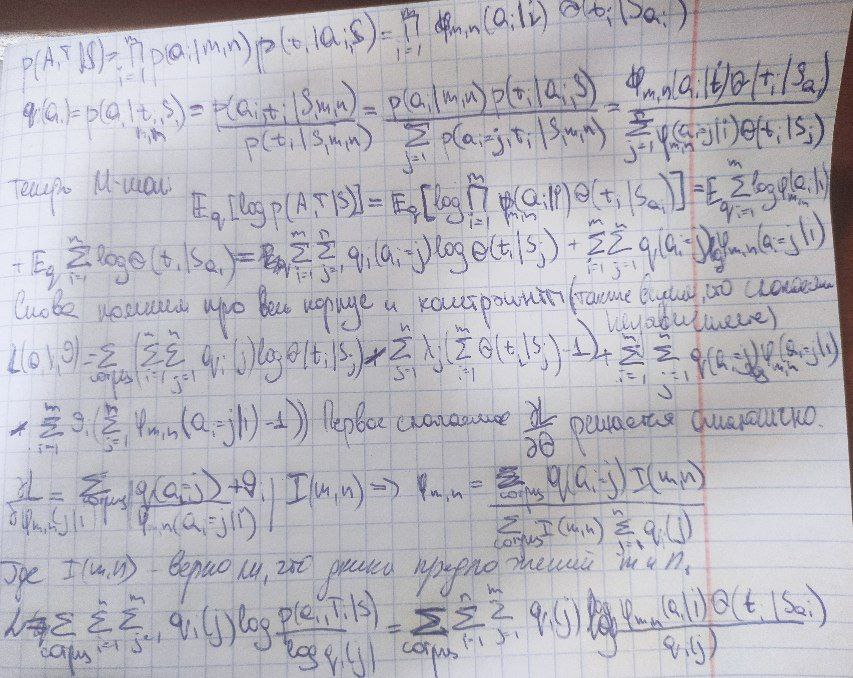 p(A,T|S) = ∏_{i=1}^{m} p(a_i|m,n) p(t_i|a_i,S) = ∏_{i=1}^{m} φ_{m,n}(a_i|i) Θ(t_i|S_{a_i})
q(a_i) = p(a_i|t_i,S_i m,n) = p(a_i,t_i|S,m,n) / p(t_i|S,m,n) = p(a_i|m,n) p(t_i|a_i,S) / ∑_{j=1} p(a_i=j,t_i|S,m,n) = φ_{m,n}(a_i|i) Θ(t_i|S_{a_i}) / ∑_{j=1} φ_{m,n}(a_i=j|i) Θ(t_i|S_j)
Теперь M-шаг: E_q[log p(A,T|S)] = E_q[log ∏_{i=1}^{m} φ_{m,n}(a_i|i) Θ(t_i|S_{a_i})] = E_q ∑_{i=1}^{m} log φ_{m,n}(a_i|i)
+ E_q ∑_{i=1}^{m} log Θ(t_i|S_{a_i}) = ∑_{i=1}^{m} ∑_{j=1}^{n} q_i(a_i=j) log Θ(t_i|S_j) + ∑_{i=1}^{m} ∑_{j=1}^{n} q(a_i=j) log φ_{m,n}(a_i=j|i)
Снова помним про весь корпус и констрэинты (также видим, что слагаемые
независимые)
L(Θ,λ,ϑ) = ∑_{corpus} (∑_{i=1}^{m} ∑_{j=1}^{n} q_i(j) log Θ(t_i|S_j) + ∑_{j=1}^{n} λ_j (∑_{i=1}^{m} Θ(t_i|S_j) - 1) + ∑_{i=1}^{m} ∑_{j=1}^{n} q(a_i=j) log φ_{m,n}(a_i=j|i)
+ ∑_{i=1}^{m} ϑ_i (∑_{j=1}^{n} φ_{m,n}(a_i=j|i) - 1)) Первое слагаемое ∂L/∂Θ решается
∂L/∂φ_{m,n}(j|i) = ∑_{corpus} (q(a_i=j) / φ_{m,n}(a_i=j|i) + ϑ_i) I(m,n) => φ_{m,n} = ∑_{corpus} q(a_i=j) I(m,n) / ∑_{corpus} I(m,n) ∑_{j=1}^{n} q_i(j)
Где I(m,n) - верно ли, что длины предложений m и n.
L = ∑_{corpus} ∑_{i=1}^{n} ∑_{j=1}^{m} q_i(j) log p(a_i,T_i|S) / log q_i(j) = ∑_{corpus} ∑_{i=1}^{n} ∑_{j=1}^{m} q_i(j) log φ_{m,n}(a_i|i) Θ(t_i|S_{a_i}) / q_i(j)